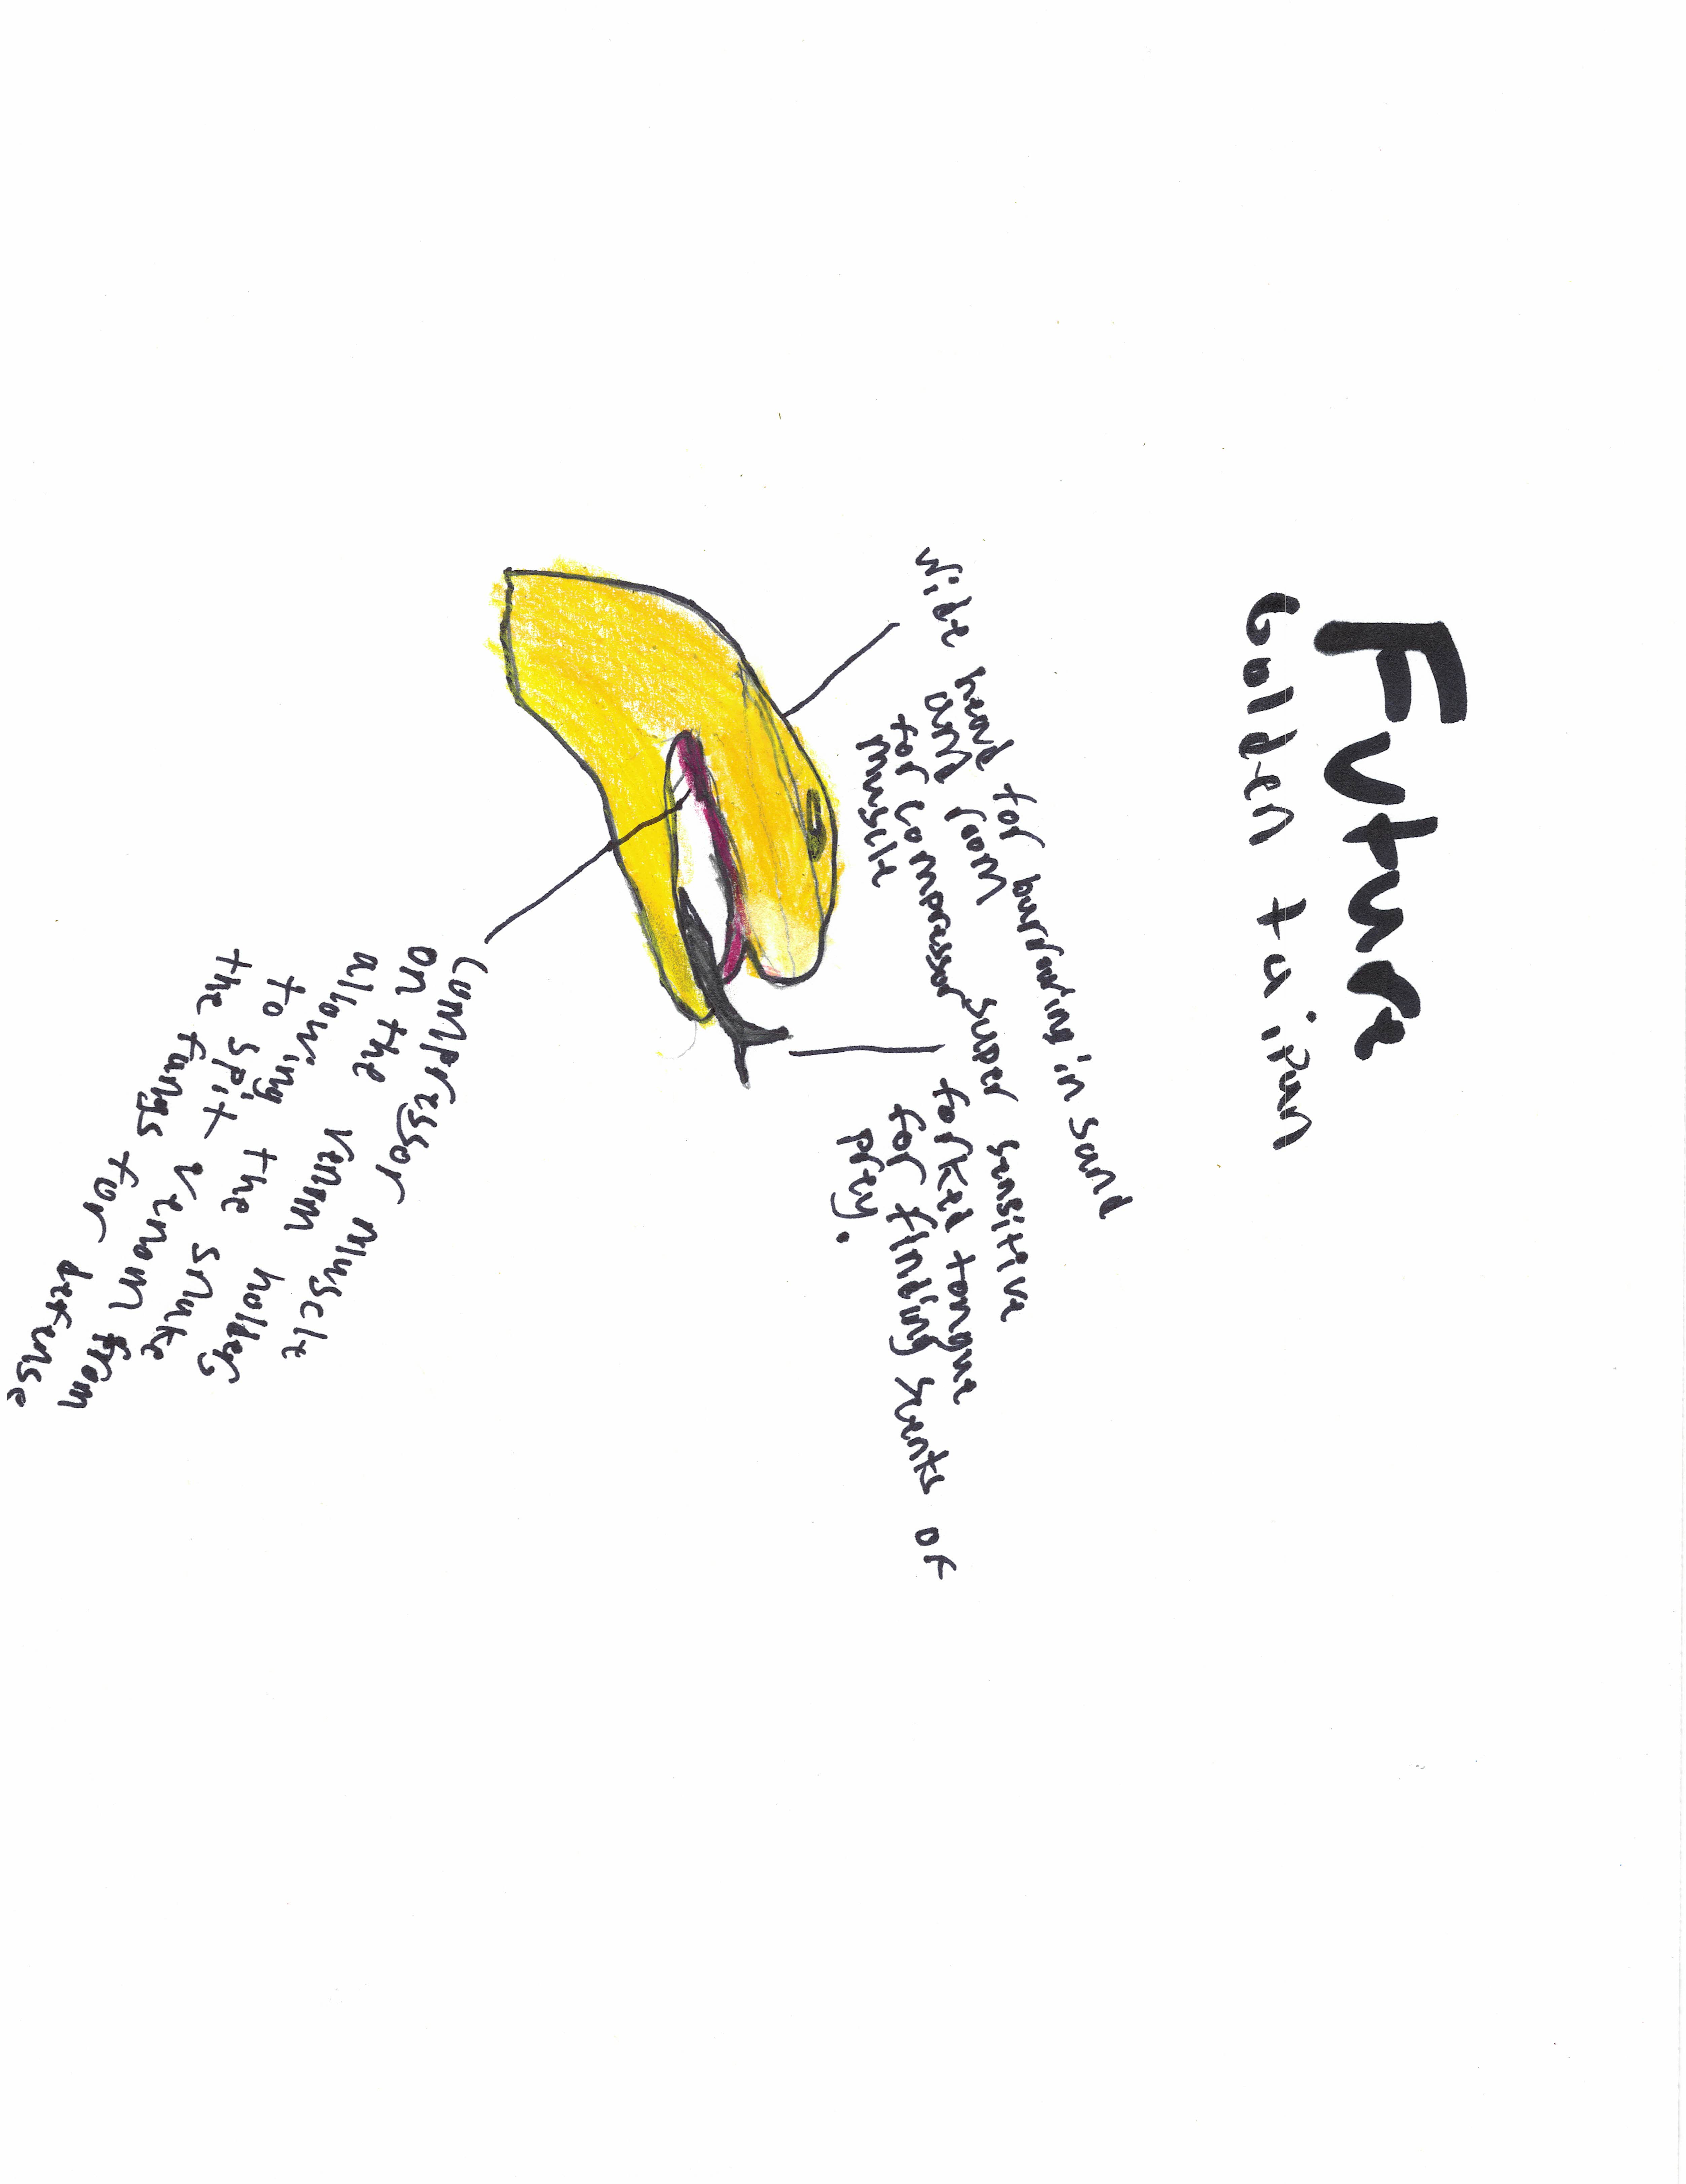 Future
Golden taipan
wide head for burrowing in sand
and room
for compressor
muscle
super sensitive
forked tongue
for finding scents of
prey.
compressor muscle
on the venm holder
allowing the snake
to spit venom from
the fangs for defense